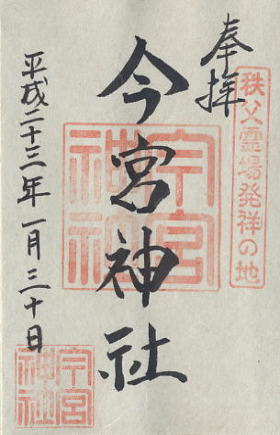 奉拝
秩父霊場発祥の地
今宮神社
今宮神社
平成二十三年一月三十日
今宮神社